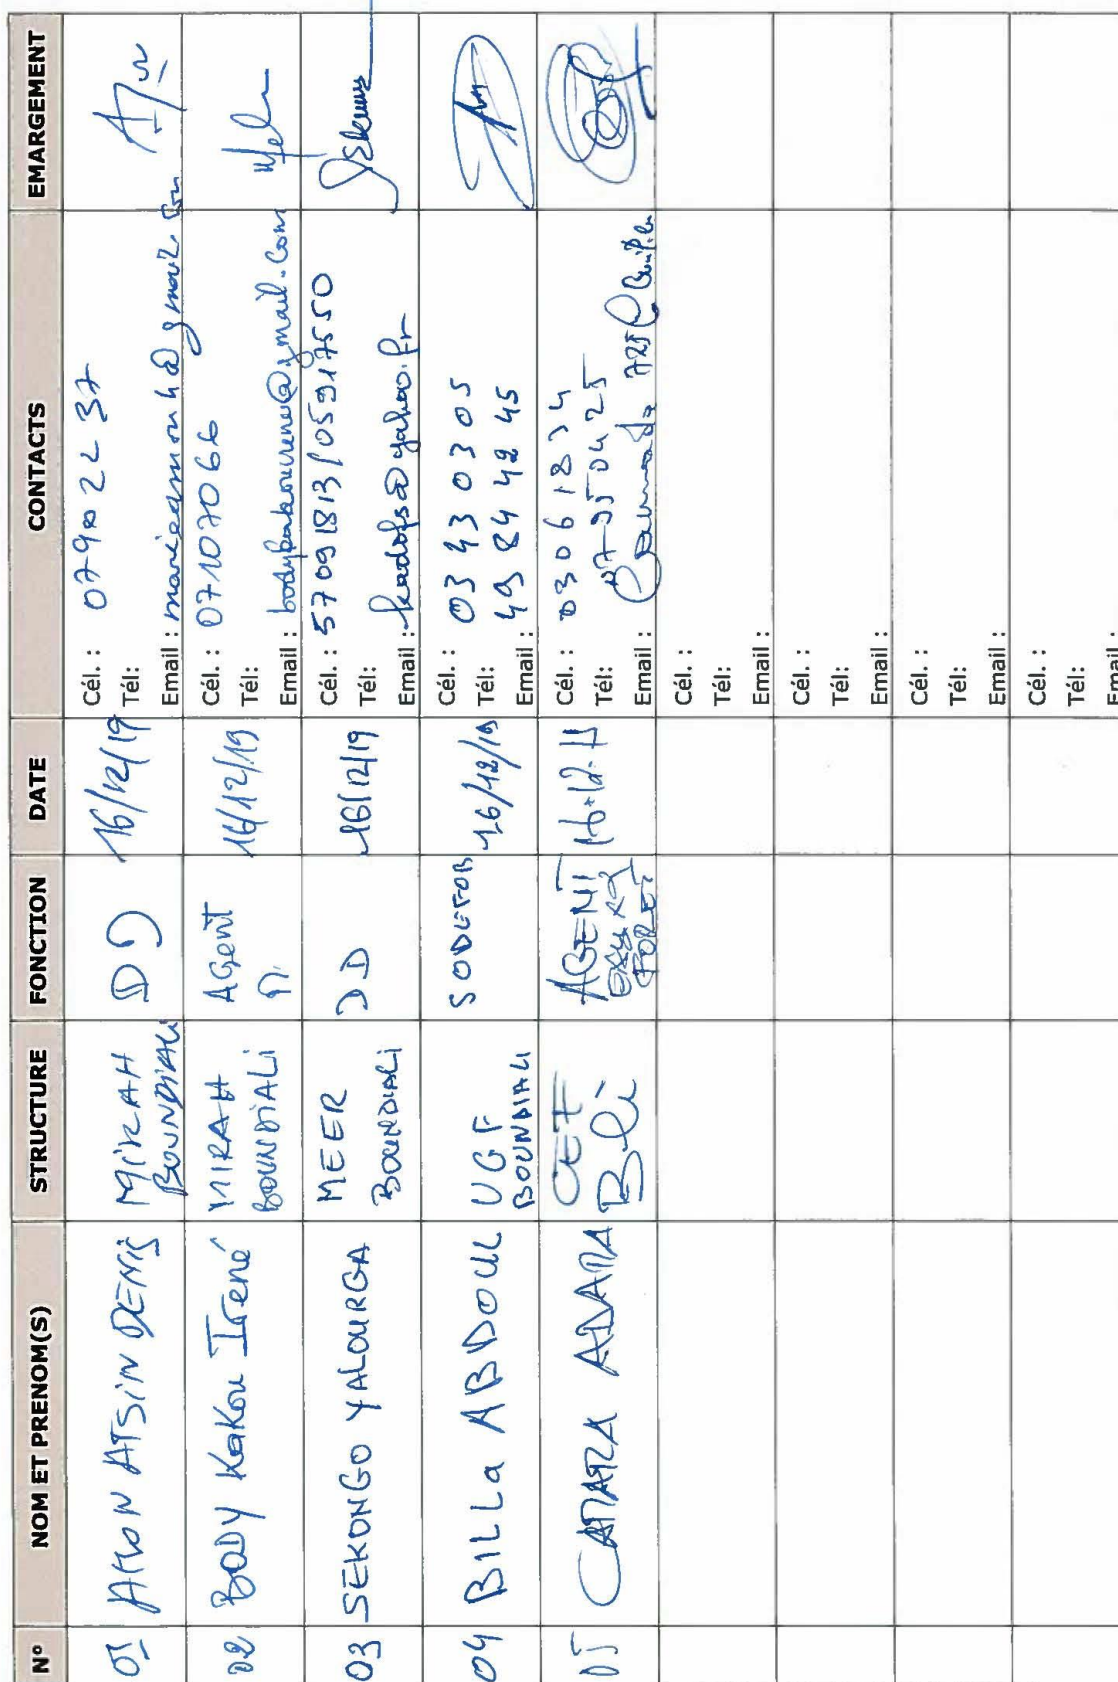 N° NOM ET PRENOM(S) STRUCTURE FONCTION DATE CONTACTS EMARGEMENT
01 ATSIN DENIS MIRAH BOUNDIALI DD 16/12/19
Cél. : 07902237
Tél:
Email :
02 BODY Kakou Irené MIRAH BOUNDIALI AGENT 16/12/19
Cél. : 07107066
Tél:
Email : bodykakouirene@gmail.com
03 SEKONGO YALOURGA MEER BOUNDIALI DD 16/12/19
Cél. : 57091813/05917550
Tél:
Email : kadofs@yahoo.fr
04 BILLa ABDOUL UGF BOUNDIALI SODEFOR 16/12/19
Cél. : 03 43 03 05
Tél: 49 84 42 45
Email :
05 CAMARA ADAMA CEF AGENT
Cél. : 03061834
Tél:
Email :
Cél. :
Tél:
Email :
Cél. :
Tél:
Email :
Cél. :
Tél:
Email :
Cél. :
Tél:
Email :